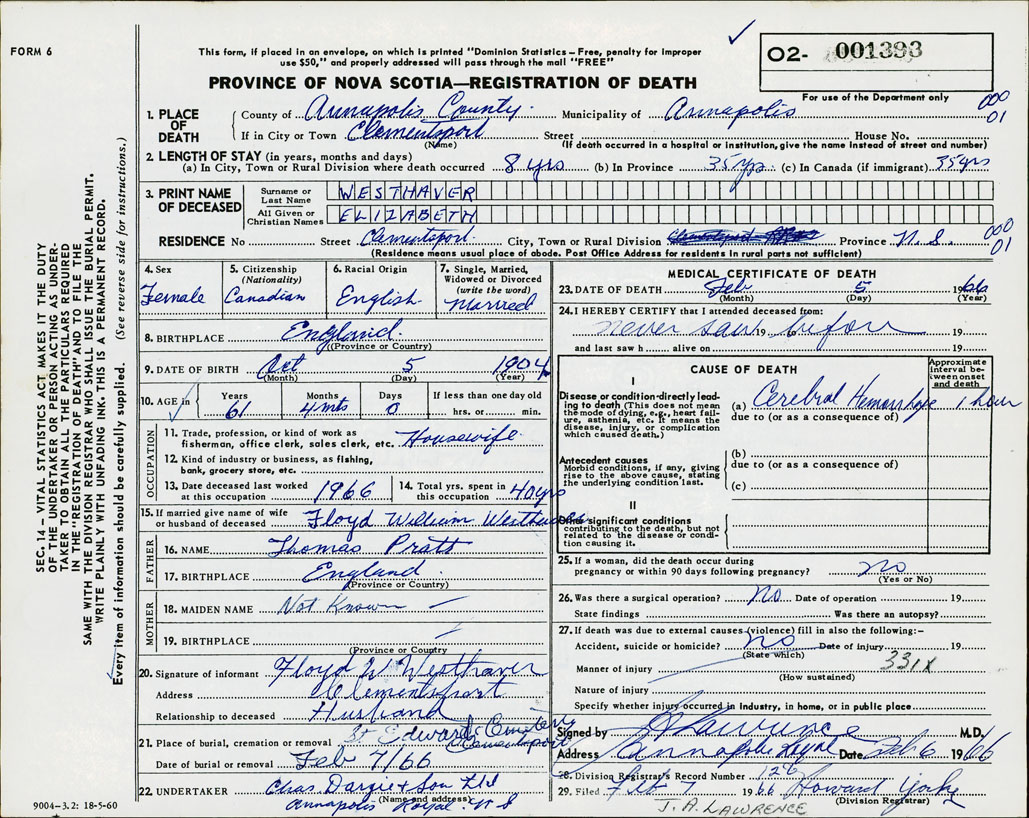 FORM 6
This form, if placed in an envelope, on which is printed "Dominion Statistics – Free, penalty for improper
use $50," and properly addressed will pass through the mail "FREE"
O2- 001393
For use of the Department only
PROVINCE OF NOVA SCOTIA—REGISTRATION OF DEATH
000
01
1. PLACE OF DEATH
County of Annapolis County. Municipality of Annapolis
If in City or Town Clementsport Street House No.
(Name) (If death occurred in a hospital or institution, give the name instead of street and number)
2. LENGTH OF STAY (in years, months and days)
(a) In City, Town or Rural Division where death occurred 8 yrs (b) In Province 35 yrs (c) In Canada (if immigrant) 35 yrs
3. PRINT NAME OF DECEASED
Surname or Last Name WESTHAVER
All Given or Christian Names ELIZABETH
RESIDENCE No Street Clementsport City, Town or Rural Division Province N.S.
000
01
(Residence means usual place of abode. Post Office Address for residents in rural parts not sufficient)
4. Sex
Female
5. Citizenship
(Nationality)
Canadian
6. Racial Origin
English
7. Single, Married, Widowed or Divorced
(write the word)
Married
8. BIRTHPLACE England
(Province or Country)
9. DATE OF BIRTH Oct 5 1904
(Month) (Day) (Year)
10. AGE in
Years Months Days If less than one day old
61 4 mts 0 hrs. or min.
OCCUPATION
11. Trade, profession, or kind of work as
fisherman, office clerk, sales clerk, etc. Housewife
12. Kind of industry or business, as fishing,
bank, grocery store, etc.
13. Date deceased last worked
at this occupation 1966
14. Total yrs. spent in
this occupation 40 yrs
15. If married give name of wife
or husband of deceased Floyd William Westhaver
FATHER
16. NAME Thomas Pratt
17. BIRTHPLACE England
(Province or Country)
MOTHER
18. MAIDEN NAME Not Known —
19. BIRTHPLACE
(Province or Country)
20. Signature of informant Floyd W Westhaver
Address Clementsport
Relationship to deceased Husband
21. Place of burial, cremation or removal St Edwards Cemetery
Clementsport
Date of burial or removal Feb 7/66
22. UNDERTAKER Chas. Dargie & Son Ltd
(Name and address)
Annapolis Royal N S
MEDICAL CERTIFICATE OF DEATH
23. DATE OF DEATH Feb 5 1966
(Month) (Day) (Year)
24. I HEREBY CERTIFY that I attended deceased from:
never saw 19 before 19
and last saw h alive on 19
CAUSE OF DEATH
Approximate interval between onset and death
I
Disease or condition directly leading to death (This does not mean
the mode of dying, e.g., heart failure, asthenia, etc. It means the
disease, injury, or complication
which caused death.)
(a) Cerebral Hemorrhage 1 hour
due to (or as a consequence of)
Antecedent causes
Morbid conditions, if any, giving
rise to the above cause, stating
the underlying condition last.
(b)
due to (or as a consequence of)
(c)
II
Other significant conditions
contributing to the death, but not
related to the disease or condition causing it.
25. If a woman, did the death occur during
pregnancy or within 90 days following pregnancy? no
(Yes or No)
26. Was there a surgical operation? no Date of operation 19
State findings Was there an autopsy?
27. If death was due to external causes (violence) fill in also the following:–
Accident, suicide or homicide? no Date of injury 19
(State which) 331X
Manner of injury
(How sustained)
Nature of injury
Specify whether injury occurred in industry, in home, or in public place
Signed by Lawrence M.D.
Address Annapolis Royal Date Feb 6 1966
28. Division Registrar's Record Number 126
29. Filed Feb 7 1966 Howard Yorke
(Division Registrar)
J. A. LAWRENCE
SEC. 14 – VITAL STATISTICS ACT MAKES IT THE DUTY
OF THE UNDERTAKER OR PERSON ACTING AS UNDER-
TAKER TO OBTAIN ALL THE PARTICULARS REQUIRED
IN THE "REGISTRATION OF DEATH" AND TO FILE THE
SAME WITH THE DIVISION REGISTRAR WHO SHALL ISSUE THE BURIAL PERMIT.
WRITE PLAINLY WITH UNFADING INK. THIS IS A PERMANENT RECORD.
Every item of information should be carefully supplied. (See reverse side for instructions.)
9004-3.2: 18-5-60